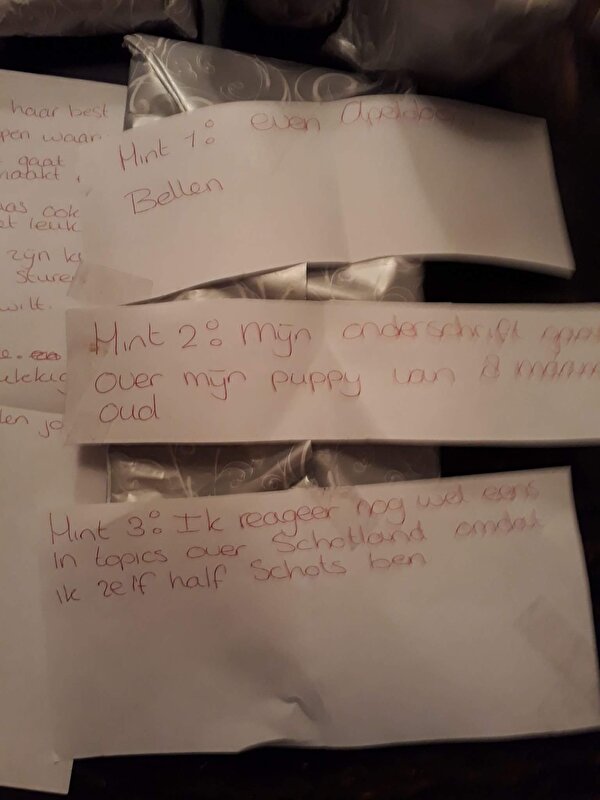 haar best
pen waar
gaat
maakt,
as ook
et leuk
zijn
sturen
wilt.
Hint 1: even
Bellen
Hint 2: Mijn onderschrift gaat
over mijn puppy van 8
oud
Hint 3: Ik reageer nog wel eens
in topics over Schotland omdat
ik zelf half Schots ben